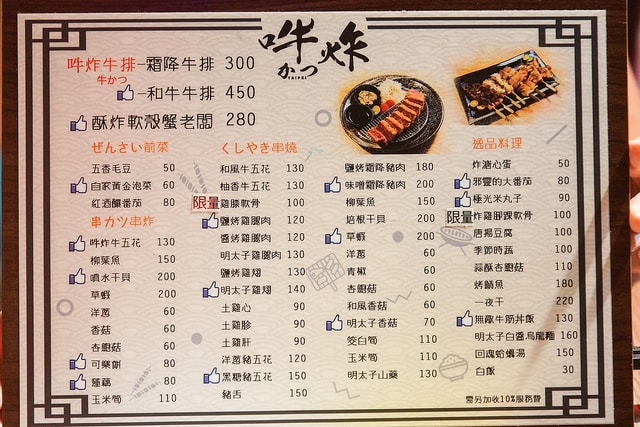 吽炸
かつ
TAIPEI
吽炸牛排-霜降牛排 300
牛かつ
-和牛牛排 450
酥炸軟殼蟹老闆 280
ぜんさい前菜
五香毛豆 50
自家黃金泡菜 60
紅酒釀番茄 80
串カツ串炸
吽炸牛五花 130
柳葉魚 150
噴水干貝 200
草蝦 200
洋蔥 60
香菇 60
杏鮑菇 60
可樂餅 80
蓮藕 80
玉米筍 110
くしやき串燒
和風牛五花 130
柚香牛五花 130
限量雞膝軟骨 100
鹽烤雞腿肉 120
醬烤雞腿肉 120
明太子雞腿肉 130
鹽烤雞翅 130
明太子雞翅 140
土雞心 90
土雞胗 90
土雞肝 90
洋蔥豬五花 120
黑糖豬五花 150
豬舌 150
鹽烤霜降豬肉 180
味噌霜降豬肉 200
柳葉魚 150
培根干貝 200
草蝦 200
洋蔥 60
青椒 60
杏鮑菇 60
和風香菇 60
明太子香菇 70
筊白筍 110
玉米筍 110
明太子山藥 130
逸品料理
炸溏心蛋 50
邪靈的大番茄 80
極光米丸子 90
限量炸雞腳踝軟骨 100
唐揚豆腐 100
季節時蔬 100
蒜酥杏鮑菇 110
烤鯖魚 180
一夜干 220
無敵牛筋丼飯 130
明太子白醬烏龍麵 160
回魂蛤蠣湯 150
白飯 30
需另加收10%服務費